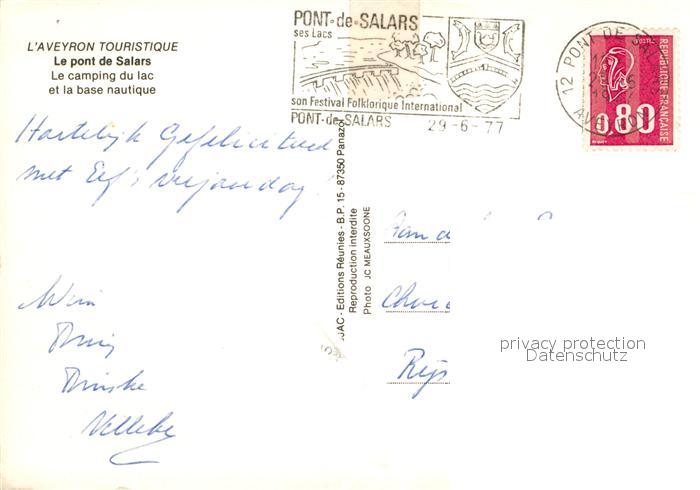 L'AVEYRON TOURISTIQUE
Le pont de Salars
Le camping du lac
et la base nautique
PONT-de-SALARS
ses Lacs
son Festival Folklorique International
PONT-de-SALARS 29-6-77
12 PONT DE
POSTES
REPUBLIQUE FRANÇAISE
0,80
Hartelijk Gefeliciteerd
met Eef's verjaardag!
Wim
JAC - Editions Réunies - B.P. 15 - 87350 Panazol
Reproduction interdite
Photo JC MEAUXSOONE
privacy protection
Datenschutz